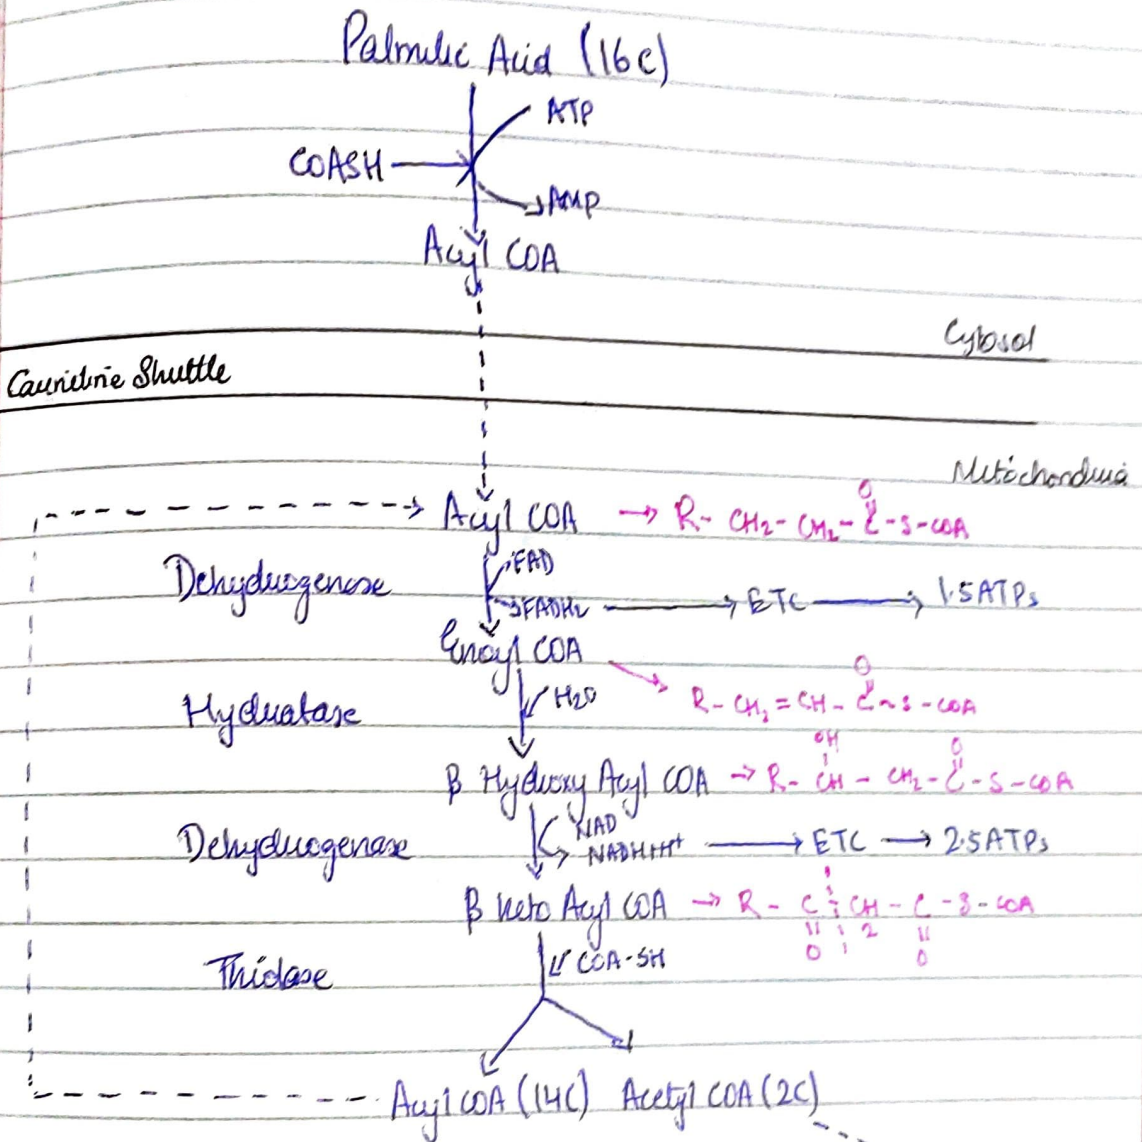 Palmitic Acid (16C)
ATP
COASH
AMP
Acyl COA
Cytosol
Carnitine Shuttle
Mitochondria
Acyl COA → R- CH2- CH2- C -S-COA
O
Dehydrogenase
FAD
FADH2 → ETC → 1.5ATPs
Enoyl COA
O
R- CH2 = CH - C ~ S - COA
Hydratase
H2O
OH
O
β Hydroxy Acyl COA → R- CH - CH2 - C - S - COA
Dehydrogenase
NAD
NADH+H+ → ETC → 2.5ATPs
β Keto Acyl COA → R - C CH - C - S - COA
2
O
O
Thiolase
COA-SH
Acyl COA (14C) Acetyl COA (2C)